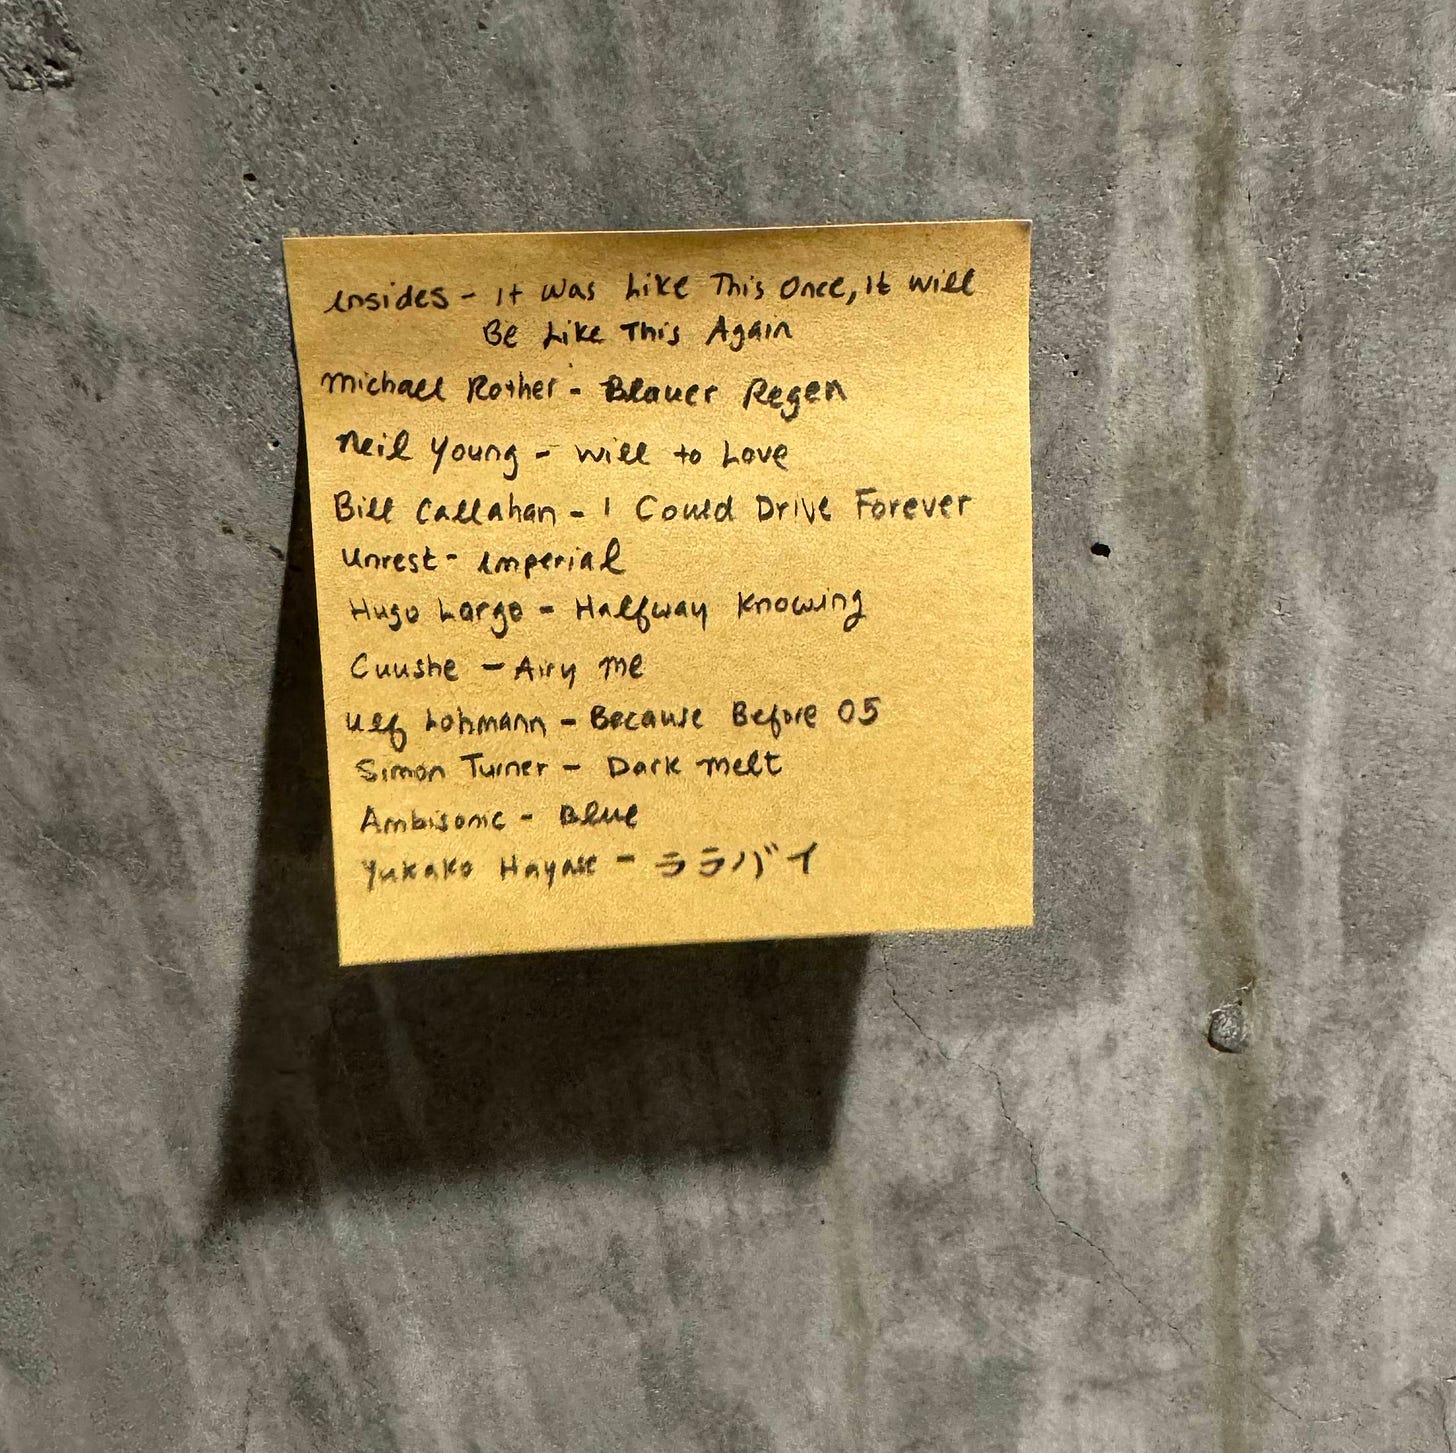 Insides - It Was Like This Once, It Will
Be Like This Again
Michael Rother - Blauer Regen
Neil Young - Will to Love
Bill Callahan - I Could Drive Forever
Unrest - Imperial
Hugo Largo - Halfway Knowing
Cuushe - Airy Me
Uef Lohmann - Because Before 05
Simon Turner - Dark Melt
Ambisonic - Blue
Yukako Hayase - ララバイ